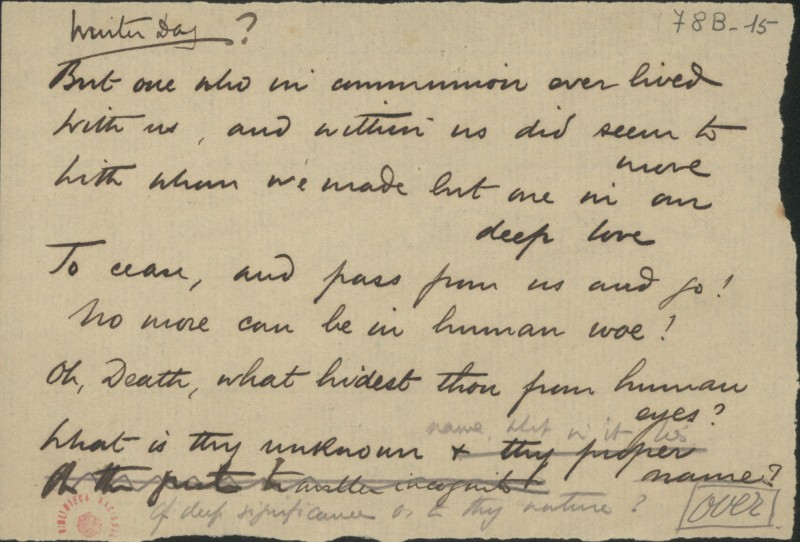 Winter Day ?
78B-15
But one who in communion ever lived
with us, and within us did seem to
move
With whom we made but one in our
deep love
To cease, and pass from us and go!
No more can be in human woe!
Oh, Death, what hidest thou from human
eyes?
name, what in it lies
What is thy unknown & thy proper
name?
Oh the great traveller incognito
Of deep significance as to thy nature?
over
BIBLIOTECA NACIONAL